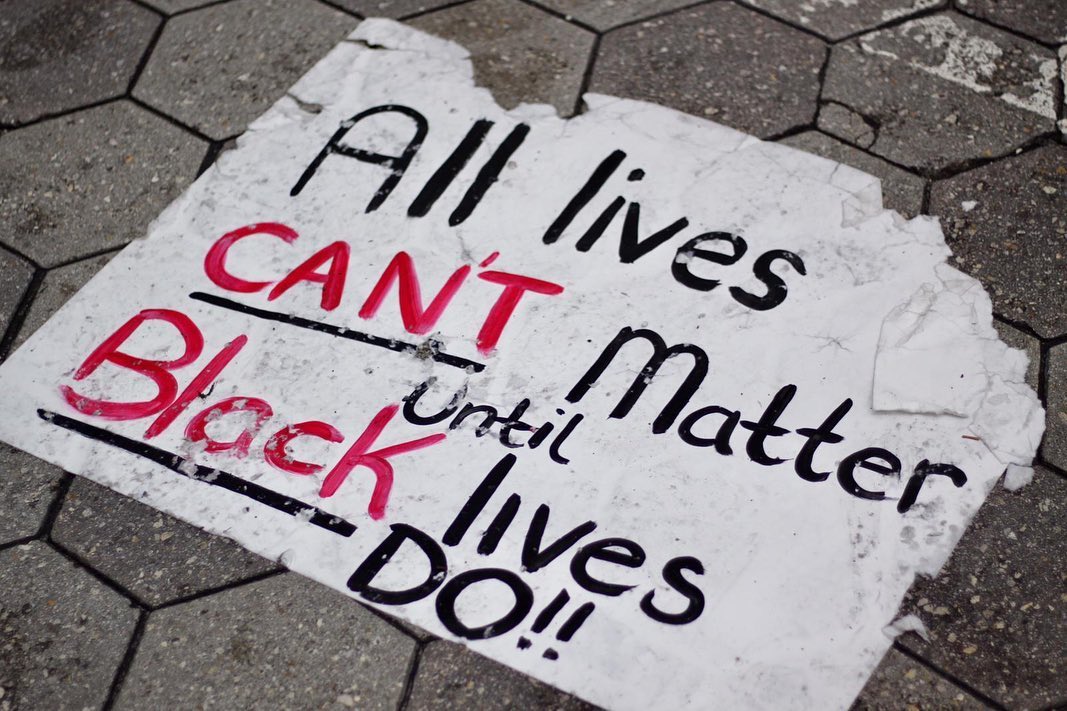 All lives
CAN'T Matter
Until
Black lives
DO!!